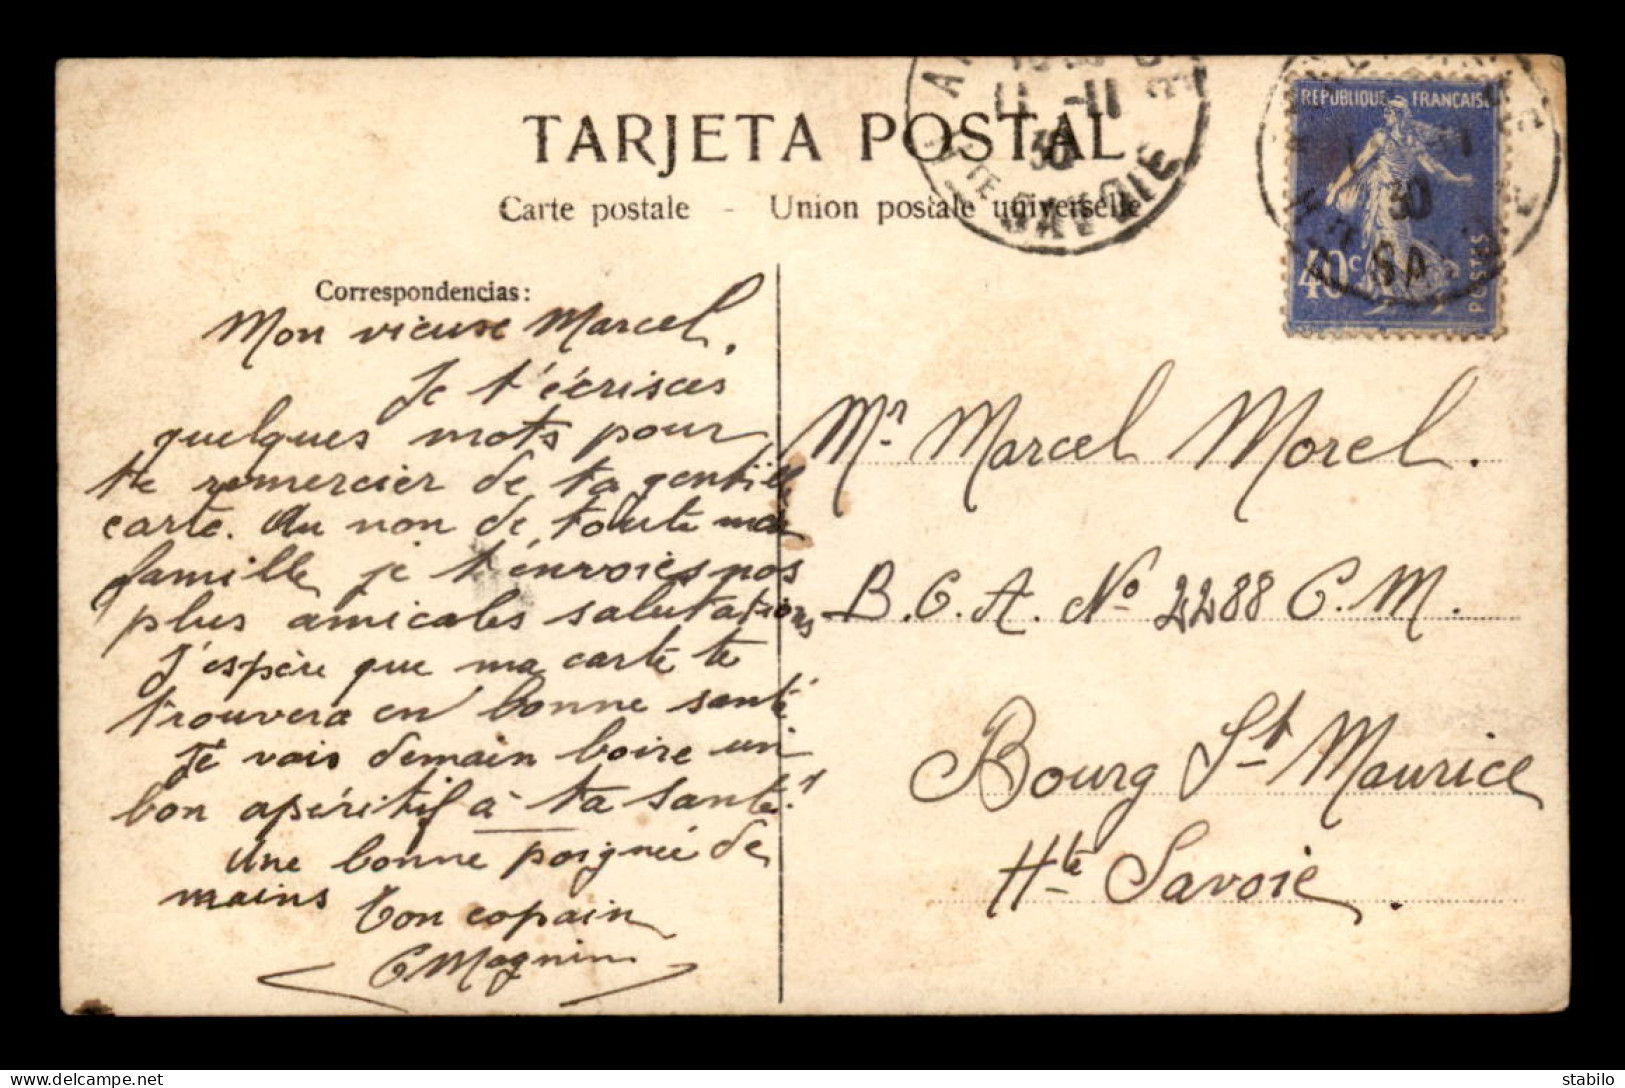 TARJETA POSTAL
Carte postale - Union postale universelle
11 -11
30
Hte SAVOIE
REPUBLIQUE FRANÇAISE
30
SA
40c
POSTES
Correspondencias:
Mon vieuse Marcel,
Je t'écrisces
quelques mots pour
te remercier de ta gentille
carte. Au non de toute ma
famille je t'envoies nos
plus amicales salutations
J'espère que ma carte te
trouvera en bonne santé.
Je vais demain boire un
bon apéritif à ta santé!
Une bonne poignée de
mains
Ton copain
C Magnin
Mr. Marcel Morel.
B.C.A. No 2288 C.M.
Bourg St Maurice
Hte Savoie.
delcampe.net
stabilo